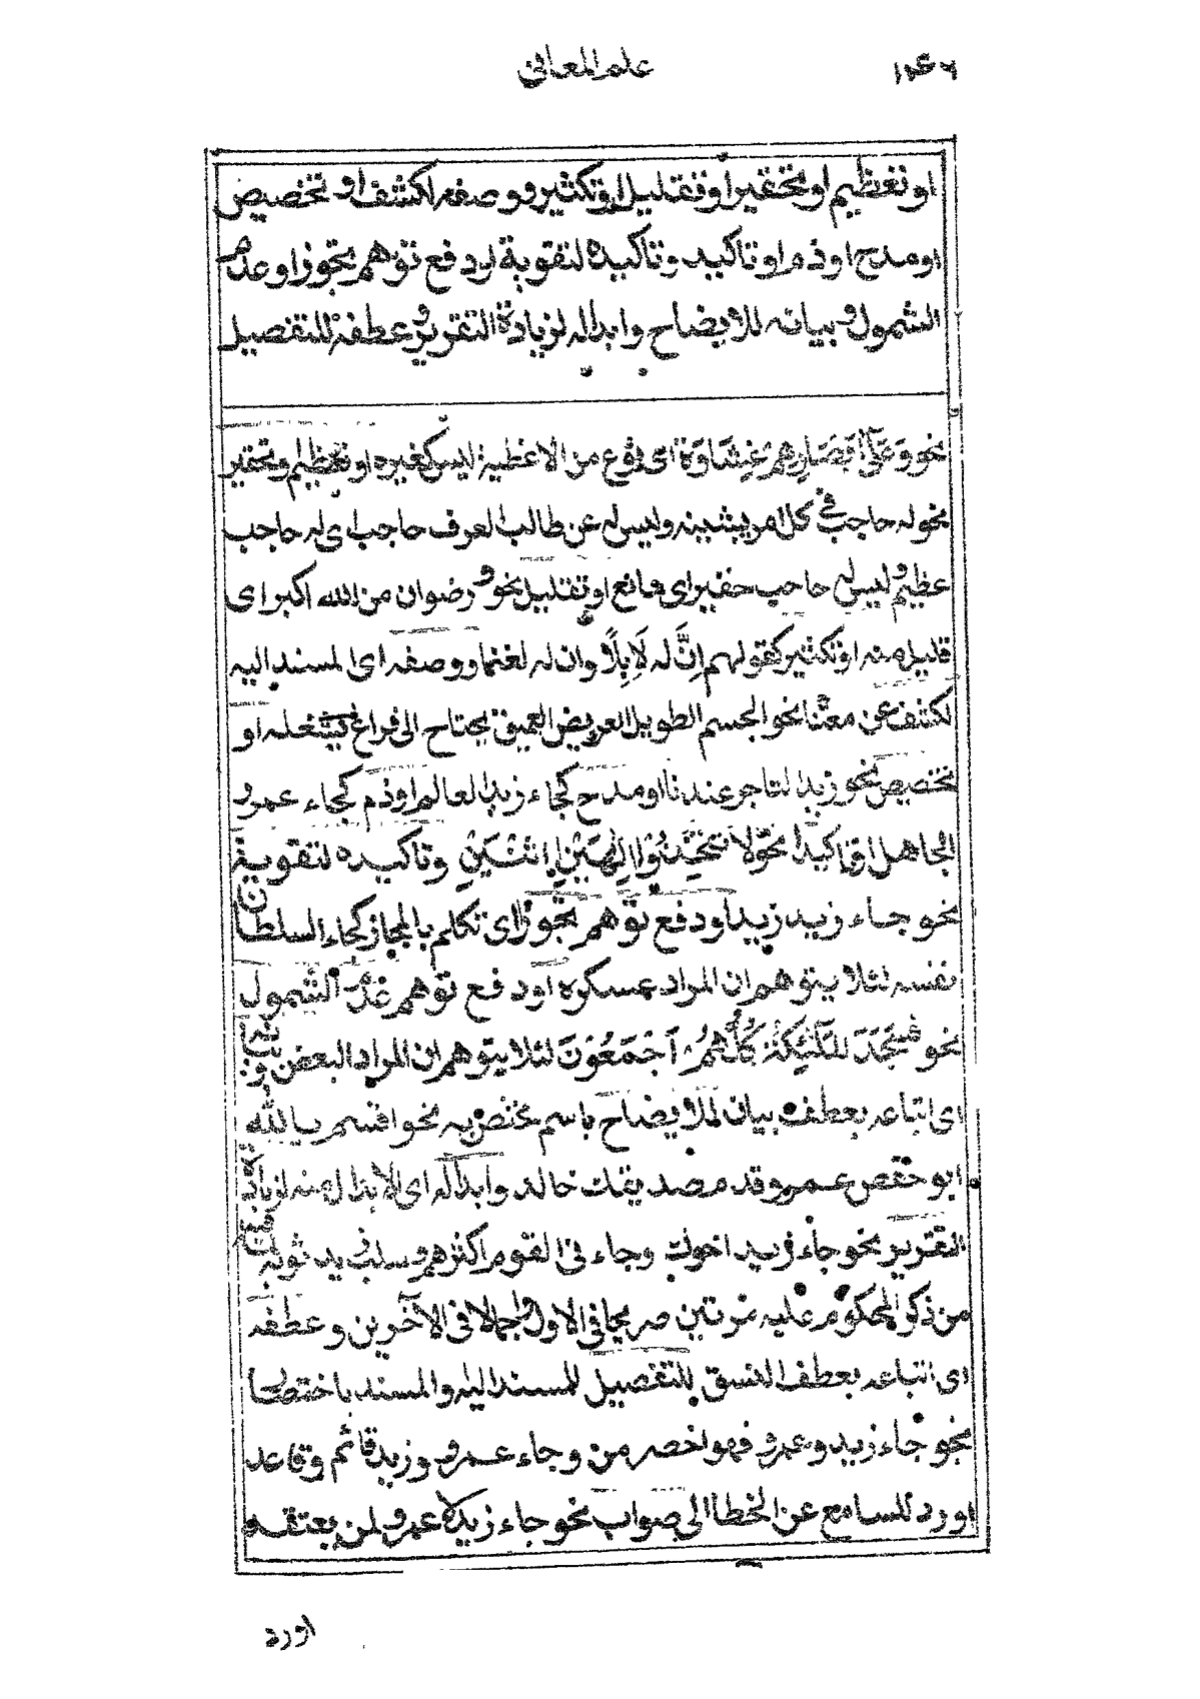 علم المعانى
او تعظيم او تحقير او تقليل او تكثير ووصفه لكشف او تخصيص
او مدح او ذم او تاكيد وتاكيده لتقوية او دفع توهم تجوز او عدم
الشمول وبيانه للايضاح وابداله لزيادة التقرير وعطفه للتفصيل
نحو وَعَلىٰ اَبْصَارِهِمْ غِشَاوَة اى نوع من الاغطية ليس كغيره او تعظيم وتحقير
نحو له حاجب فى كل امر يشينه وليس له عن طالب العرف حاجب اى له حاجب
عظيم وليس له حاجب حقير اى مانع او تقليل نحو و رضوان من الله اكبر اى
قليل منه او تكثير كقولهم اِنَّ له لَاِبِلًا وان له لغنما ووصفه اى المسند اليه
لكشف عن معناه نحو الجسم الطويل العريض العميق يحتاج الى فراغ يشغله او
تخصيص نحو زيد التاجر عندنا او مدح كجاء زيد العالم او ذم كجاء عمرو
الجاهل او تاكيد نحو لا تَتَّخِذُوْا اِلٰهَيْنِ اثْنَيْنِ وتاكيده لتقوية
نحو جاء زيد زيد او دفع توهم تجوز اى تكلم بالمجاز كجاء السلطان
نفسه لئلا يتوهم ان المراد عسكره او دفع توهم عدم الشمول
نحو فسَجَدَ المَلٰئِكَةُ كُلُّهُمْ اَجْمَعُوْنَ لئلا يتوهم ان المراد البعض وبيانه
اى اتباعه بعطف بيان للايضاح باسم مختص به نحو اقسم بالله
ابو حفص عمرو قدم صديقك خالد وابداله اى الابدال منه لزيادة
التقرير نحو جاء زيد اخوك وجاء نى القوم اكثرهم وسلب زيد ثوبه
من ذكر المحكوم عليه مرتين صريحا فى الاول واجمالا فى الآخرين وعطفه
اى اتباعه بعطف النسق للتفصيل للمسند اليه والمسند باختصار
نحو جاء زيد وعمرو فهو اخصر من وجاء عمرو وزيد قائم وقاعد
او رد للسامع عن الخطا الى صواب نحو جاء زيد لا عمرو لمن يعتقد
اورد